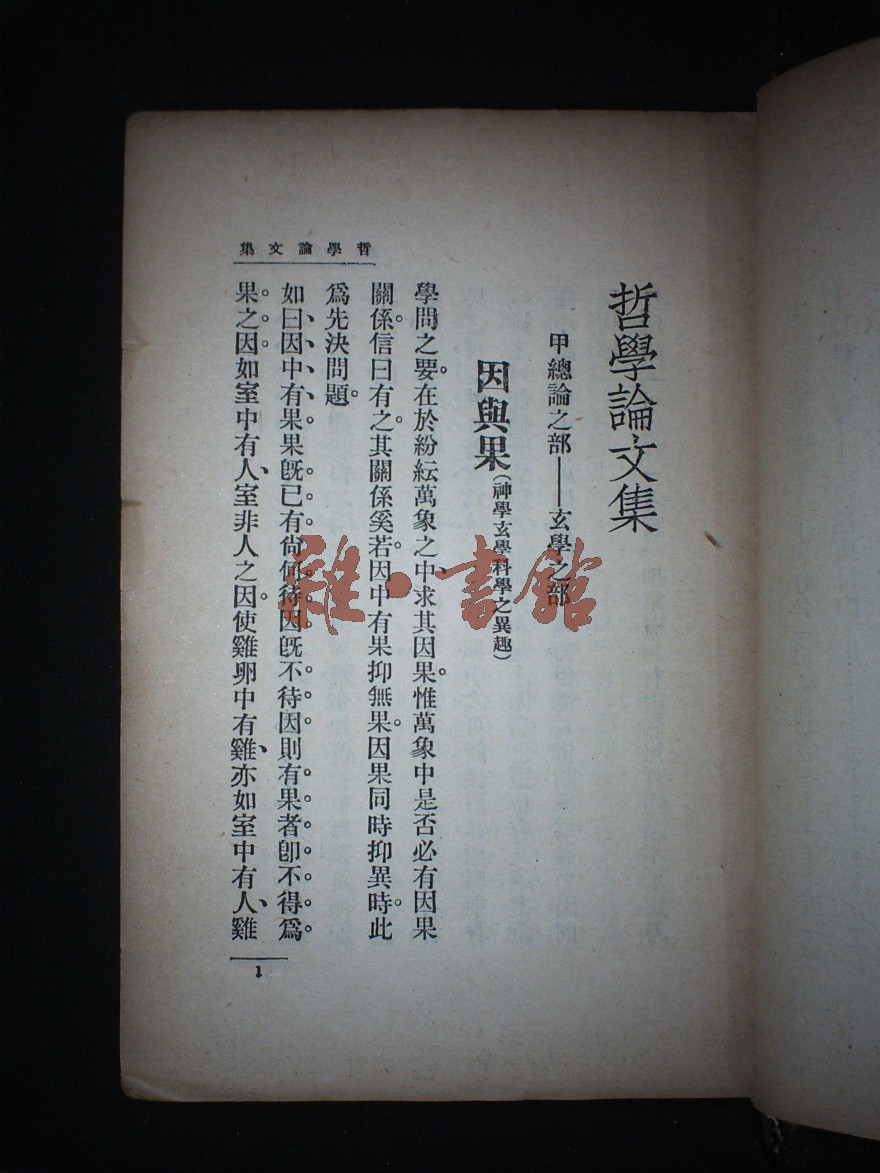 哲學論文集
哲學論文集
甲總論之部——玄學之部
因與果(神學玄學科學之異趣)
學問之要。在於紛紜萬象之中、求其因果。惟萬象中是否必有因果
關係。信曰有之。其關係奚若。因中有果抑無果。因果同時抑異時。此
爲先決問題。
如曰因中有果、果旣已有、尙何待因。旣不待因。則有果者。卽不得爲。
果。之。因。如室中有人、室非人之因。使雞卵中有雞、亦如室中有人、雞
1
雜·書館